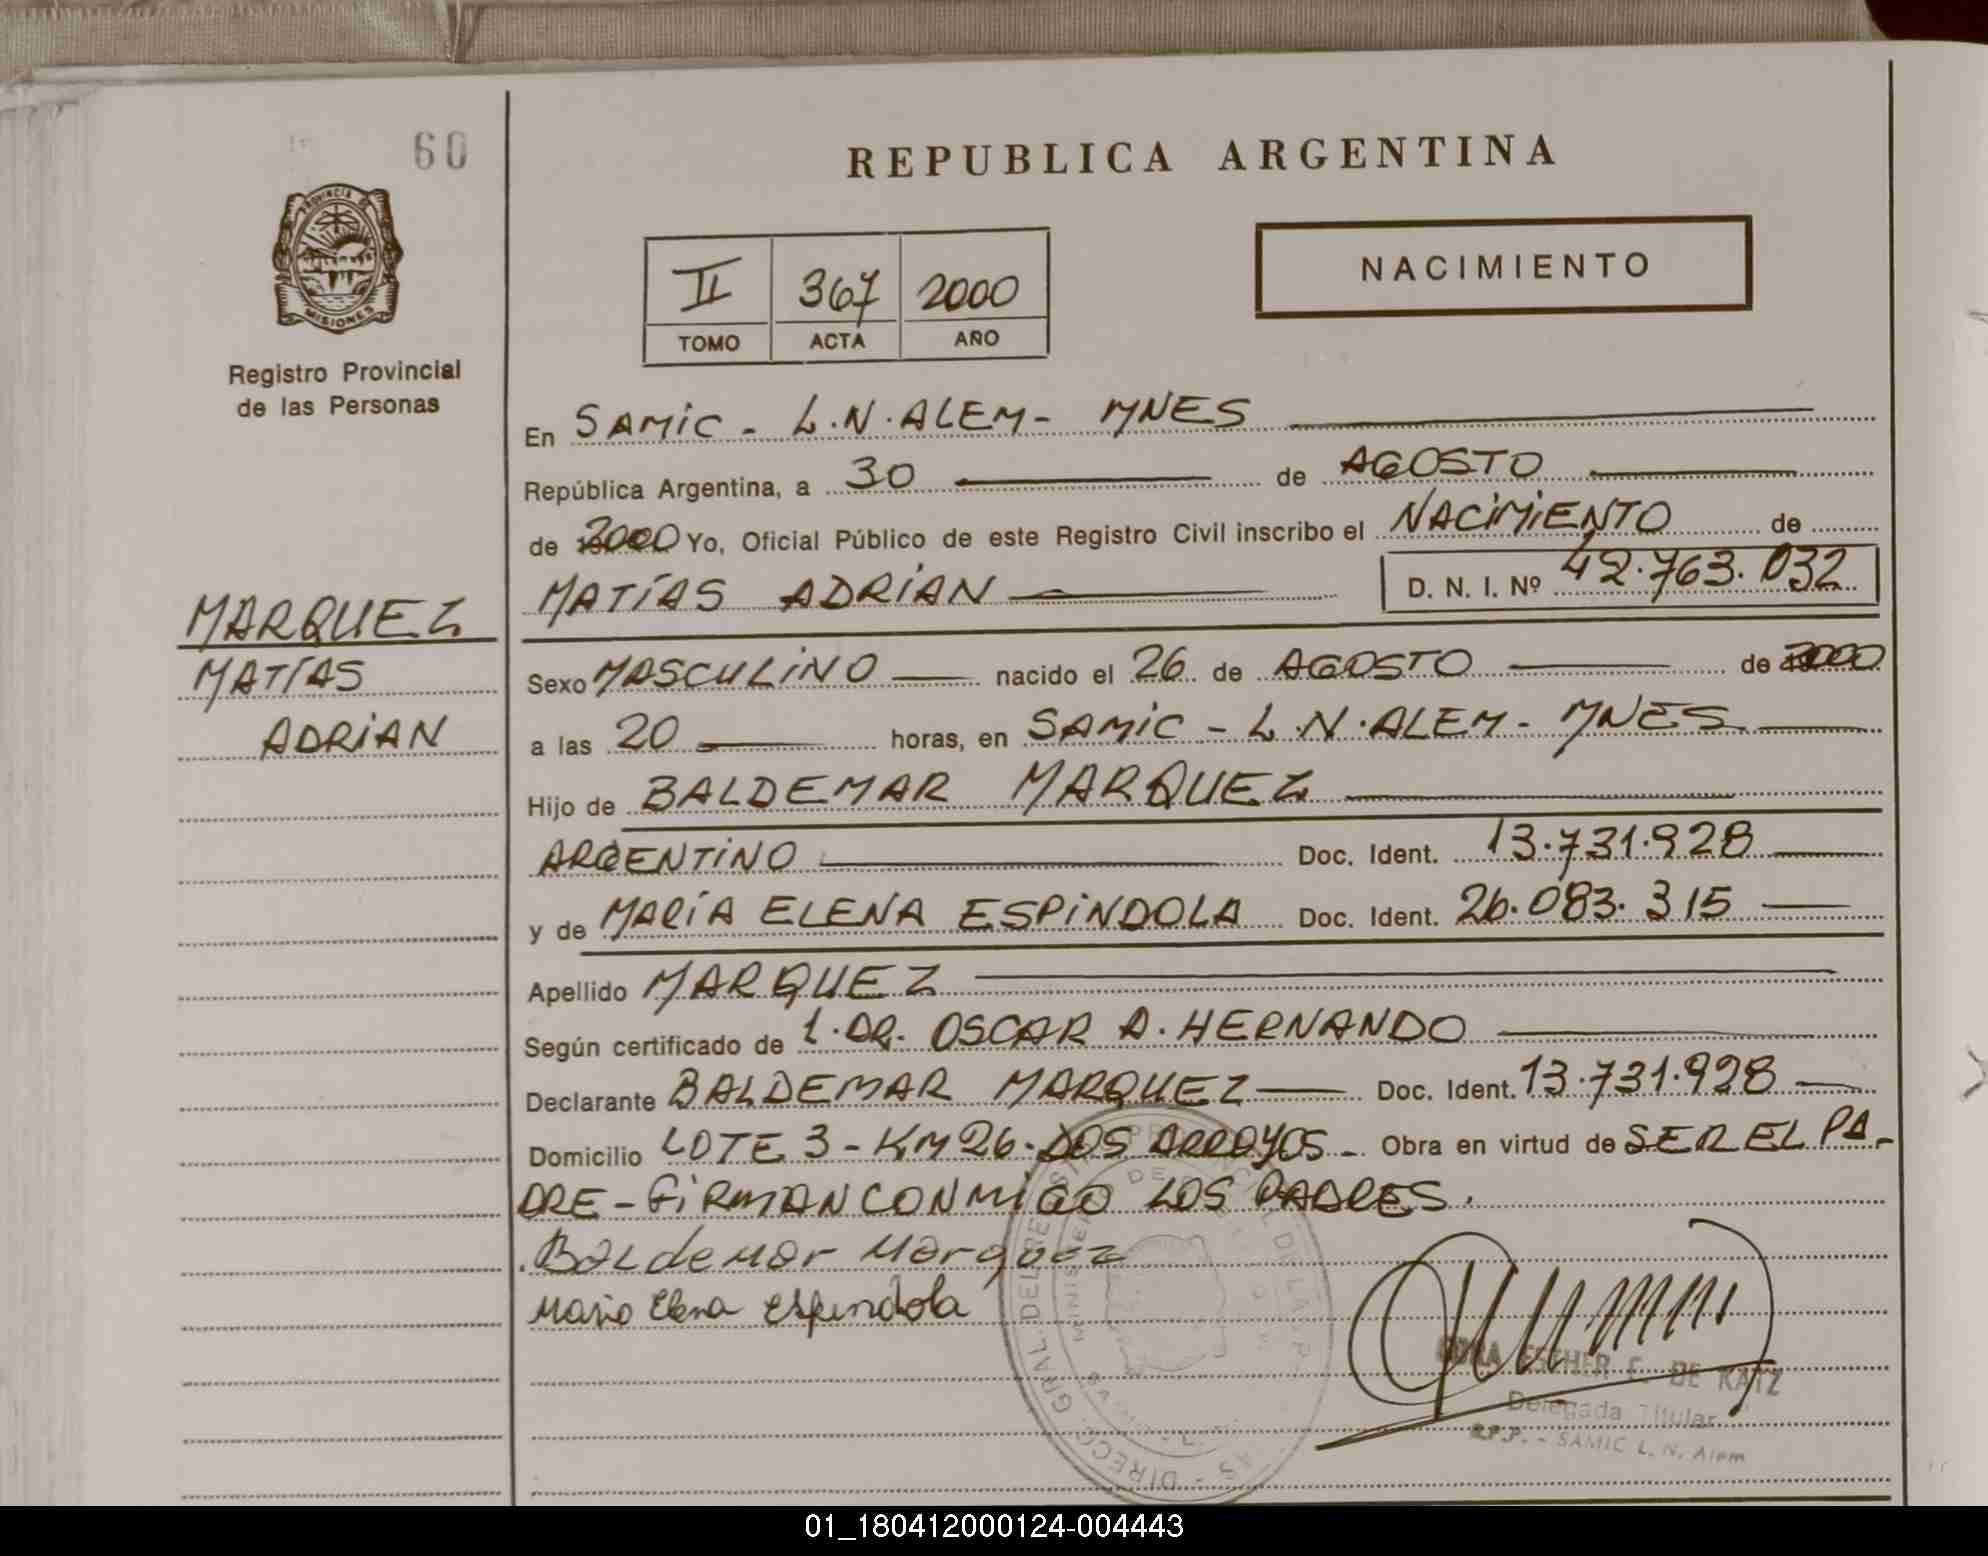 60
REPUBLICA ARGENTINA
PROVINCIA DE
MISIONES
Registro Provincial
de las Personas
NACIMIENTO
II 367 2000
TOMO ACTA AÑO
En SAMIC - L.N.ALEM - MNES
República Argentina, a 30 de AGOSTO
de 2000 Yo, Oficial Público de este Registro Civil inscribo el NACIMIENTO de
MATÍAS ADRIAN D. N. I. Nº 42.763.032
MARQUEZ
MATÍAS
ADRIAN
Sexo MASCULINO nacido el 26 de AGOSTO de 2000
a las 20 horas, en SAMIC - L.N.ALEM - MNES
Hijo de BALDEMAR MARQUEZ
ARGENTINO Doc. Ident. 13.731.928
y de MARÍA ELENA ESPINDOLA Doc. Ident. 26.083.315
Apellido MARQUEZ
Según certificado de 1.DR. OSCAR A. HERNANDO
Declarante BALDEMAR MARQUEZ Doc. Ident. 13.731.928
Domicilio LOTE 3 - KM 26. DOS ARROYOS - Obra en virtud de SER EL PA-
DRE - FIRMAN CONMIGO LOS PADRES.
Baldemar Marquez
Maria Elena Espindola
ESTHER F. DE KATZ
Delegada Titular
R.P.P. - SAMIC L. N. Alem
01_180412000124-004443